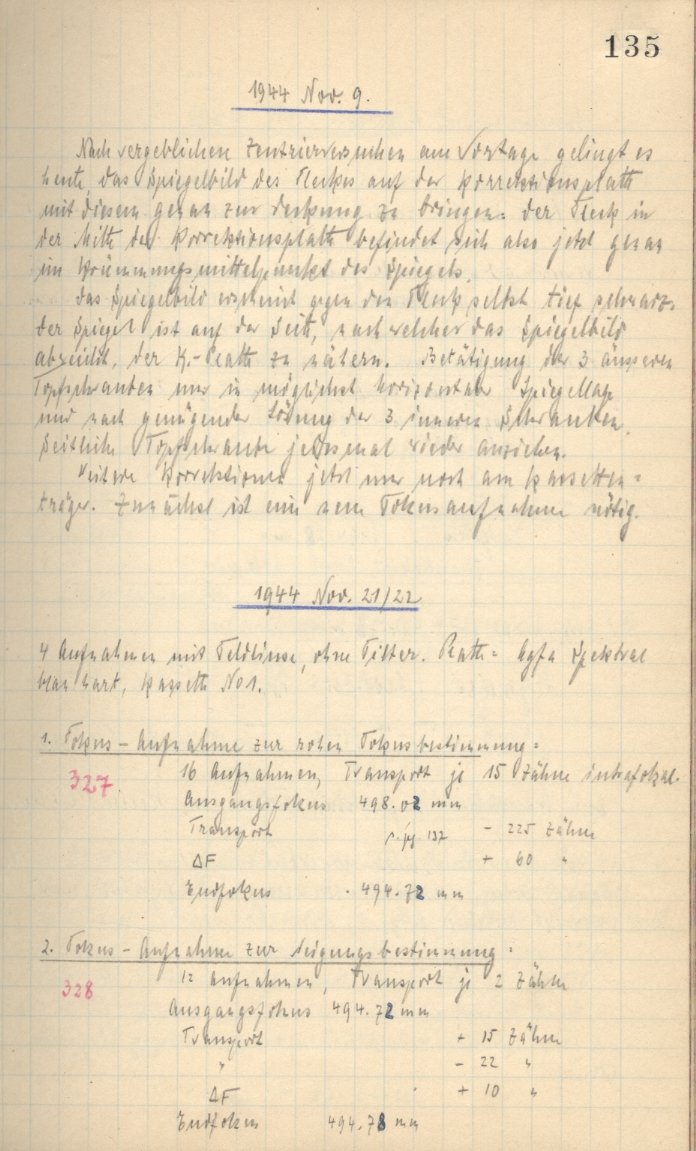 135
1944 Nov. 9.
Nach vergeblichen Zentrierversuchen am Vortage gelingt es
heute, das Spiegelbild des Flecks auf der Korrektionsplatte
mit diesem genau zur Deckung zu bringen. Der Fleck in
der Mitte der Korrektionsplatte befindet sich also jetzt genau
im Krümmungsmittelpunkt des Spiegels.
Das Spiegelbild erscheint gegen den Fleck selbst tief schwarz.
Der Spiegel ist auf der Seite, nach welcher das Spiegelbild
abweicht, der K.-Platte zu nähern. Betätigung der 3 äusseren
Topfschrauben nur in möglichst horizontaler Spiegellage
und nach genügender Lösung der 3 inneren Schrauben.
Seitliche Topfschraube jedesmal wieder anziehen.
Weitere Korrektionen jetzt nur noch am Kassetten=
träger. Zunächst ist eine neue Fokusaufnahme nötig.
1944 Nov. 21/22
4 Aufnahmen mit Feldlinse, ohne Filter. Platte= Agfa Spektral
blau hart, Kassette No 1.
1. Fokus-Aufnahme zur rohen Fokusbestimmung=
327. 16 Aufnahmen, Transport je 15 Zähne intrafokal.
Ausgangsfokus 498.02 mm
Transport s. pg. 137 - 225 Zähne
ΔF + 60 "
Endfokus 494.72 mm
2. Fokus-Aufnahme zur Neigungsbestimmung=
328 12 Aufnahmen, Transport je 2 Zähne
Ausgangsfokus 494.72 mm
Transport + 15 Zähne
" - 22 "
ΔF + 10 "
Endfokus 494.78 mm